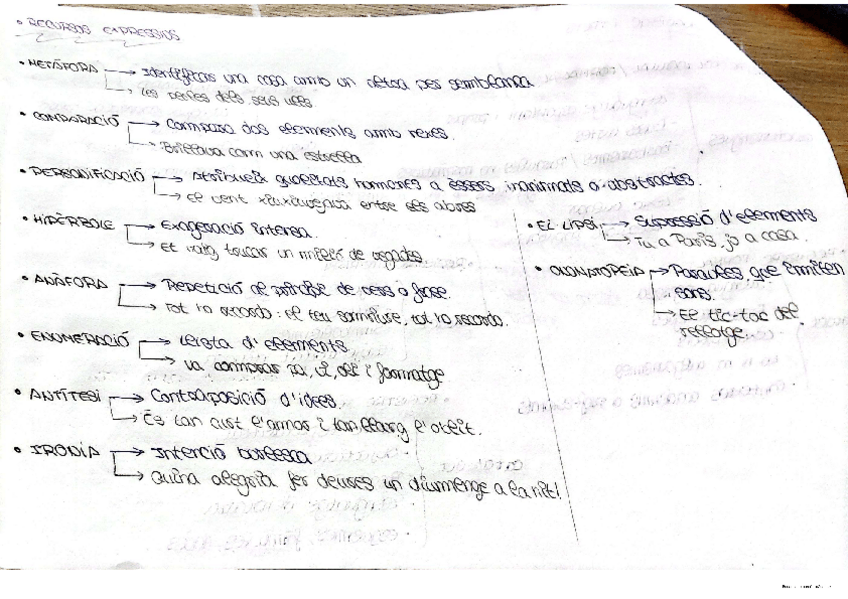 • RECURSOS EXPRESSIUS
• METÀFORA → Identificar una cosa amb un altra per semblança
→ Les perles dels seus ulls
• COMPARACIÓ → Comparar dos elements amb nexes.
→ Brillava com una estrella
• PERSONIFICACIÓ → Atribueix qualitats humanes a éssers inanimats o abstractes.
→ El vent xiuxiuejava entre els arbres
• HIPÈRBOLE → Exageració intensa.
→ Et vaig trucar un milió de vegades.
• ANÀFORA → Repetició al principi de vers o frase.
→ Tot ho recordo: el teu somriure, tot ho recordo.
• ENUMERACIÓ → Llista d'elements
→ Va comprar pa, vi, oli i formatge
• ANTÍTESI → Contraposició d'idees
→ És tan curt l'amor i tan llarg l'oblit.
• IRONIA → Intenció burlesca
→ Quina alegria fer deures un diumenge a la nit!
• EL·LIPSI → Supressió d'elements
→ Tu a París, jo a casa.
• ONOMATOPEIA → Paraules que imiten
sons.
→ El tic-tac del
rellotge